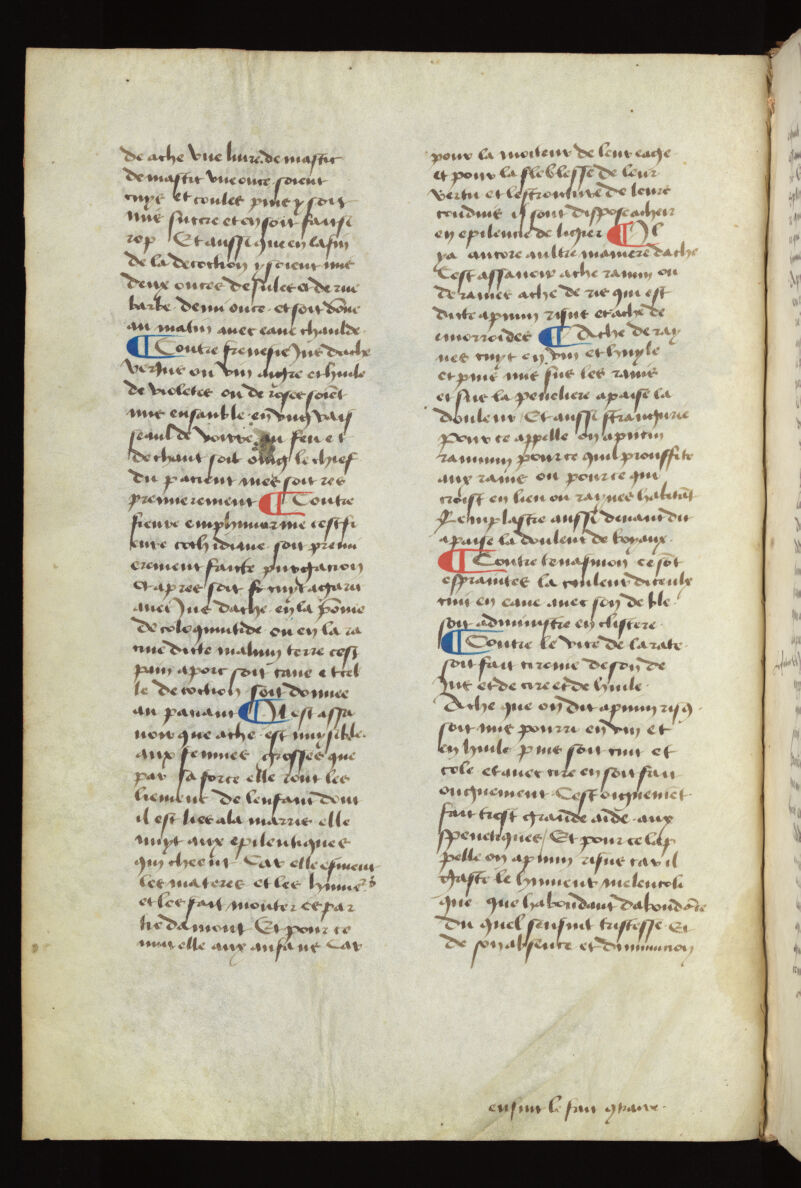 de ache vne liure. de mastic
de mastic vne once soient
cuys et coulés puis y soit
mis succre et en soit fait si
rop Et aussi que en la fin
de la decoction y soient mis
deux onces de
barbe demi once et soit dōne
au matin auec eaue chaulde
¶ Contre frenesie Jus dache
verius ou vin aigre et huile
de violetes ou de roses soiēt
mis ensanble en vng vais
seaul de voirre au feu et
de chaut soit oing le chief
du pacient mes soit res
premierement ¶ Contre
fieure cest fi
eure cothidiane soit premi
erement faicte purgacion
Et apres soit cuyt agaric
auec Jus dache en la pōme
de coloquintide ou en la ra
cine dicte malum terre cest
pain a porc soit caue et tel
le decoction soit donnee
au pauant ¶ Il est assa
uoir que ache est nuysible
aux femmes grosses que
par sa force elle ront les
liemens de lenfant dont
il est lies a la marris elle
nuyt aux epilentiques
qui cheent Car elle esmeut
les materes et les humeᵘˢ
et les fait monter es par
ties damont Et pour ce
nuit elle aux anfans Car
pour la moiteur de leur eage
et pour la fleblesse de leur
vertu et lestroiture de leurs
conduis il sont dispose a cheir
en epilencie de ligier ¶ Il
ya ancore aultre maniere dache
Cest assauoir ache ranin ou
de raines ache de ris qui est
dicte apium risus et ache de
emorroides ¶ Ache de ray
nes cuyt en vin et huyle
et puis mis sus les rains
et sus la peneliere apaise la
douleur Et aussi stranguirie
pour ce appelle on apium
raninum pour ce quil prouffite
aux rains ou pour ce que
croist en lieu ou raynes habitāt
Lemplastre aussi deuant dit
apaise la douleur de boyaux
¶ Contre tenasmon ce sōt
espraintes la
cuit en eaue auec son de ble
soit administre en clistere
¶ Contre le vice de la rate
soit fait ciroine de son de
Jus et de cire et de huile
Ache que on dit apium risꝰ
soit mis pourri en vin et
en huile puis soit cuit et
cole et auec cire en soit fait
oignement Cest oignemēt
fait trest grande aide aux
spenetiques / Et pour ce lap
pelle on apium risus car il
gaste le humeur melencoli
que que habondant dabondāce
du quel sensuit tristesse Et
de son absence et diminucion
ensuit le fait 9traire